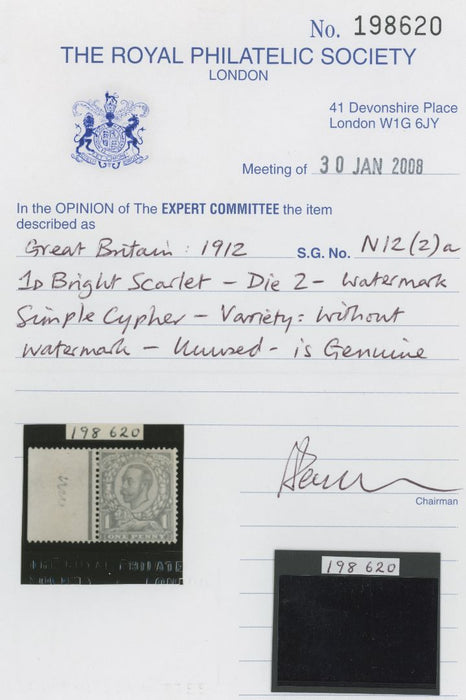 No. 198620
THE ROYAL PHILATELIC SOCIETY
LONDON
41 Devonshire Place
London W1G 6JY
Meeting of 30 JAN 2008
In the OPINION of The EXPERT COMMITTEE the item
described as
Great Britain: 1912 S.G. No. N12(2)a
1D Bright Scarlet – Die 2 – Watermark
Simple Cypher – Variety: Without
Watermark – Unused – is Genuine
198 620
ONE PENNY
THE ROYAL PHILATE
Chairman
198 620